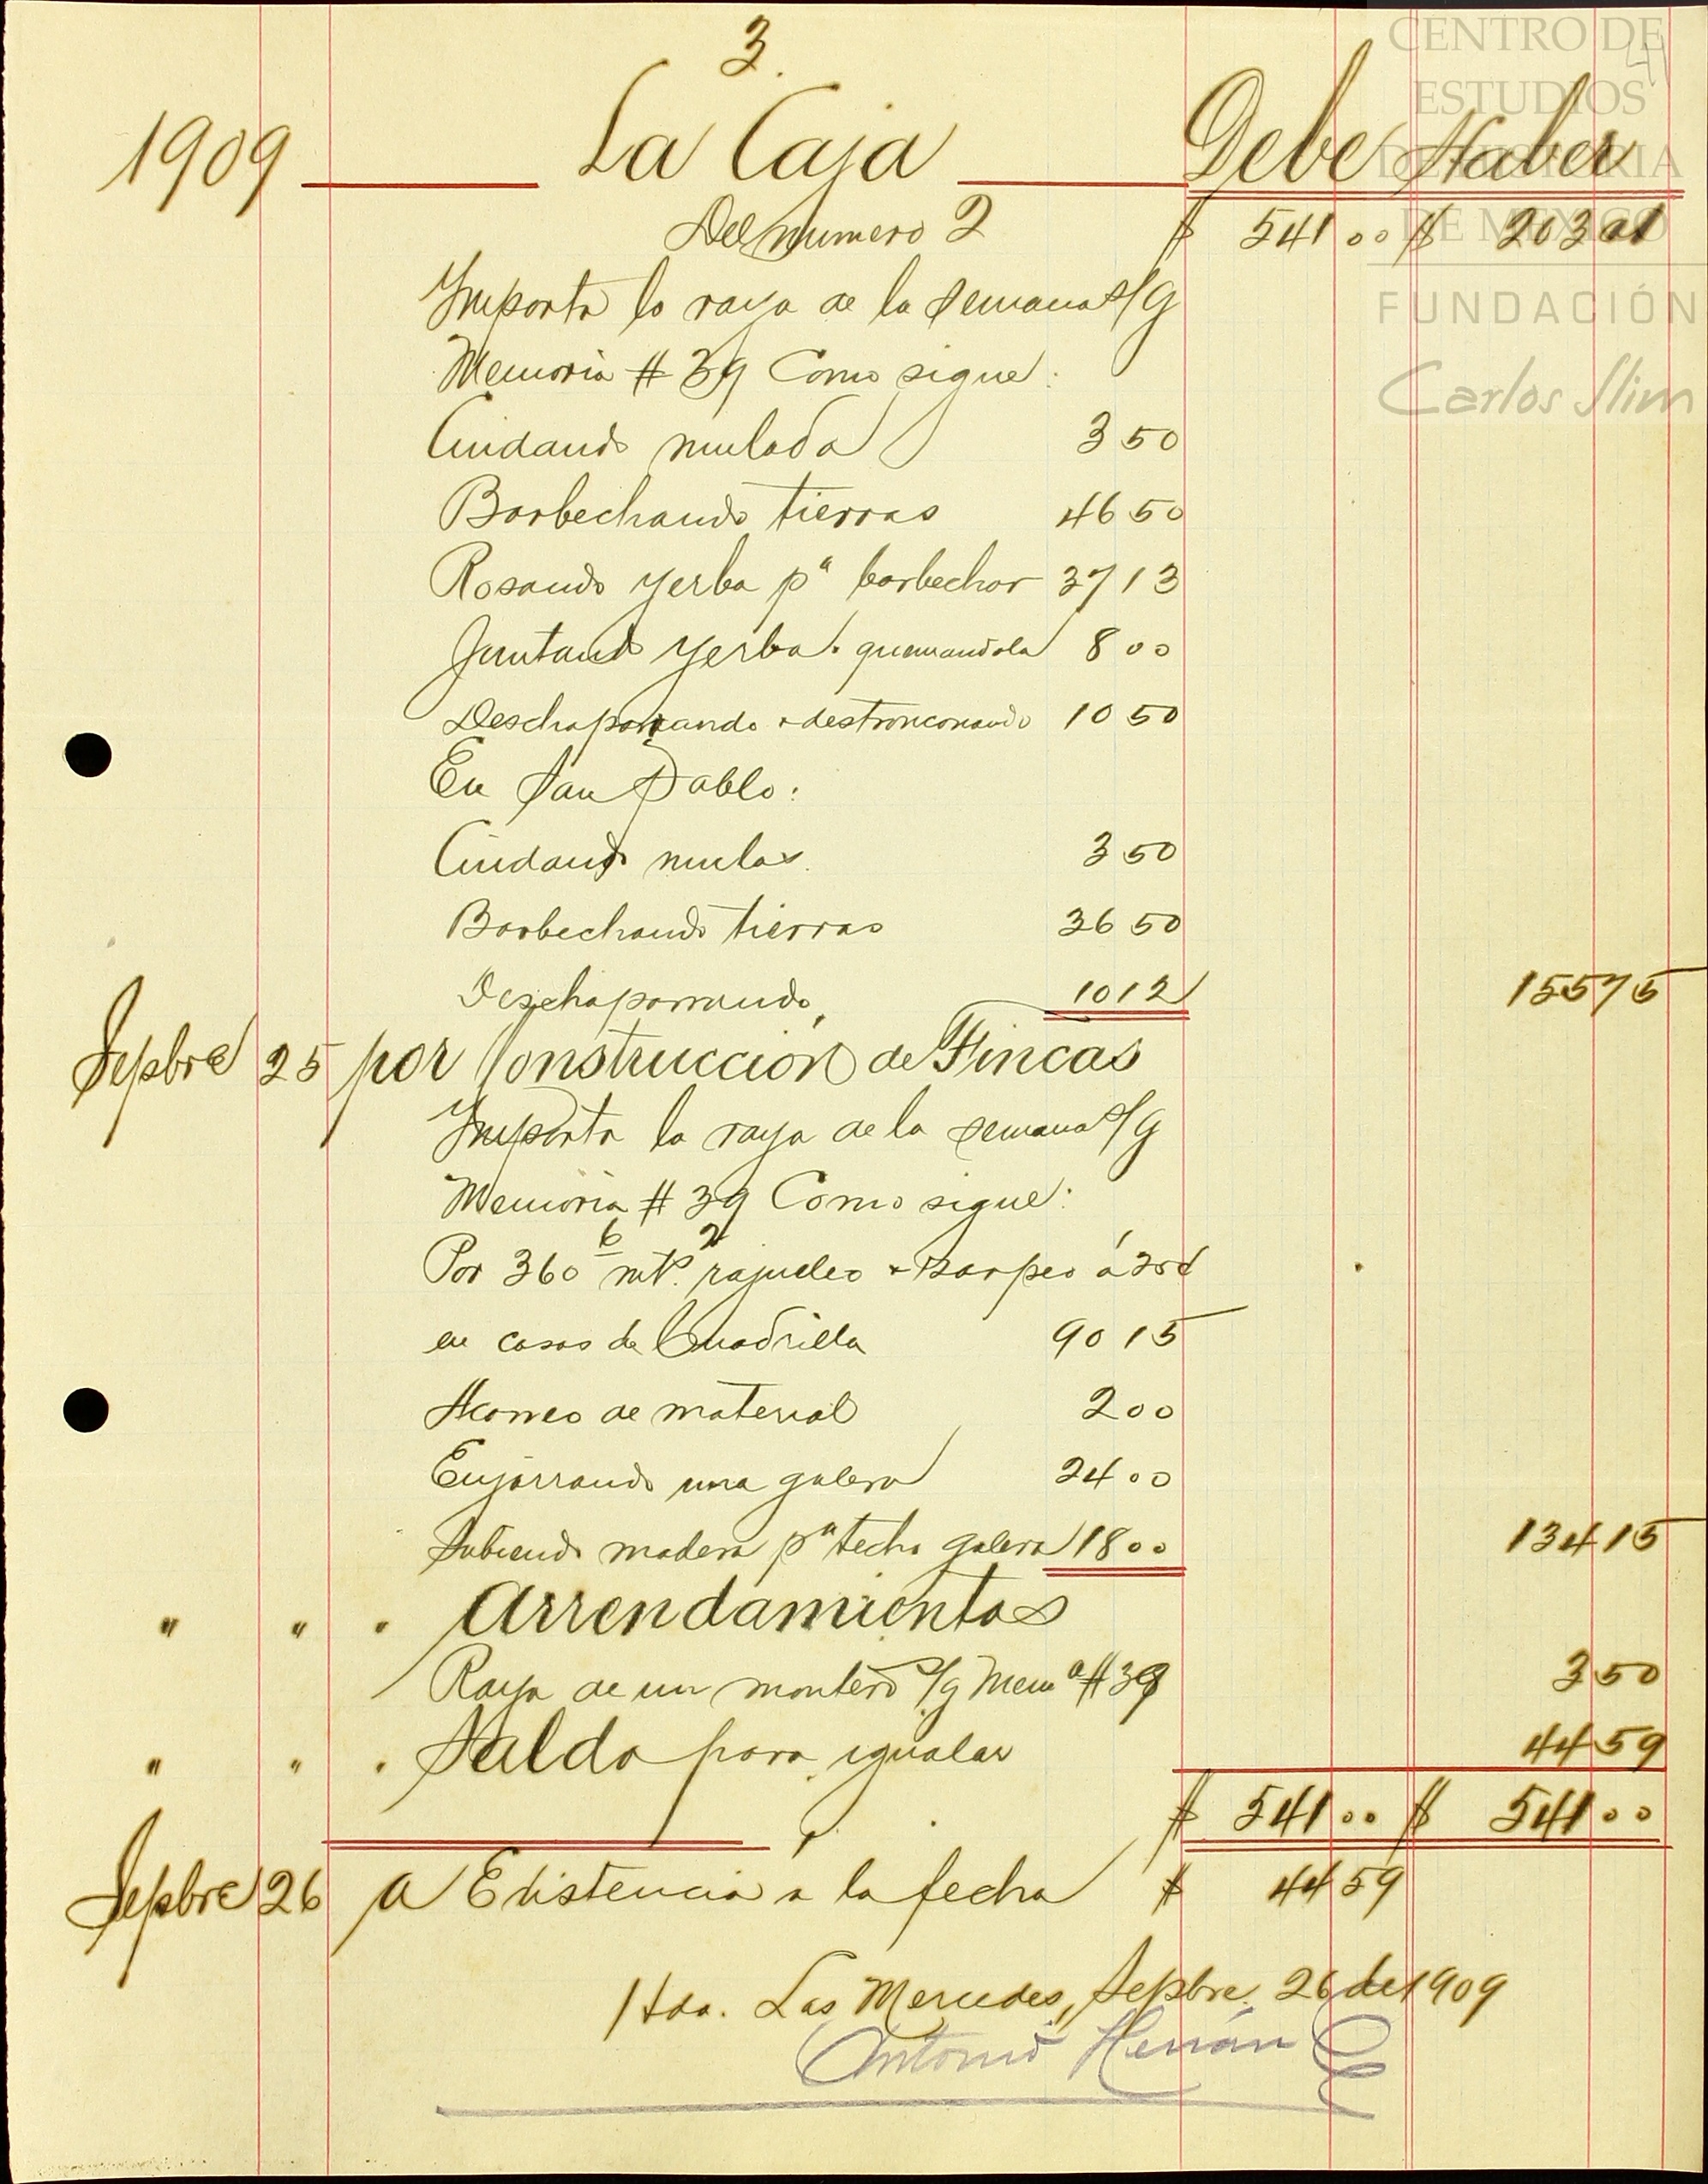 3.
1909 La Caja Debe Haber
Del numero 2 $ 541 00 $ 203 01
Importa la raya de la semana s/g
Memoria # 39 Como sigue:
Cuidando mulada 3 50
Barbechando tierras 46 50
Rosando yerba pª barbechar 37 13
Juntando yerba quemandola 8 00
Deschaparrando + destronconando 10 50
En San Pablo:
Cuidando mulas. 3 50
Barbechando tierras 36 50
Deschaparrando 10 12 155 75
Sepbre 25 por Construccion de Fincas
Importa la raya de la semana s/g
Memoria # 39 Como sigue:
Por 360 6 mts. 2 rajueleo + zarpeo á 25¢
en casas de Cuadrilla 90 15
Acarreo de material 2 00
Enjarrando una galera 24 00
Subiendo madera pª techo galera 18 00 134 15
" " " Arrendamientos
Raya de un montero s/g Memª # 39 3 50
" " " Saldo para igualar 44 59
$ 541 00 $ 541 00
Sepbre 26 A Existencia a la fecha $ 44 59
Hda. Las Mercedes, Sepbre. 26 de 1909
Antonio Herrán
CENTRO DE
ESTUDIOS
DE HISTORIA
DE MEXICO
FUNDACIÓN
Carlos Slim